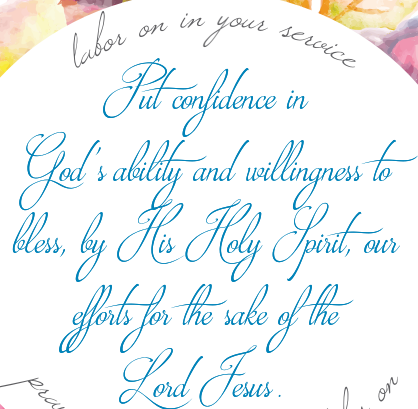 labor on in your service
Put confidence in
God's ability and willingness to
bless, by His Holy Spirit, our
efforts for the sake of the
Lord Jesus.
on